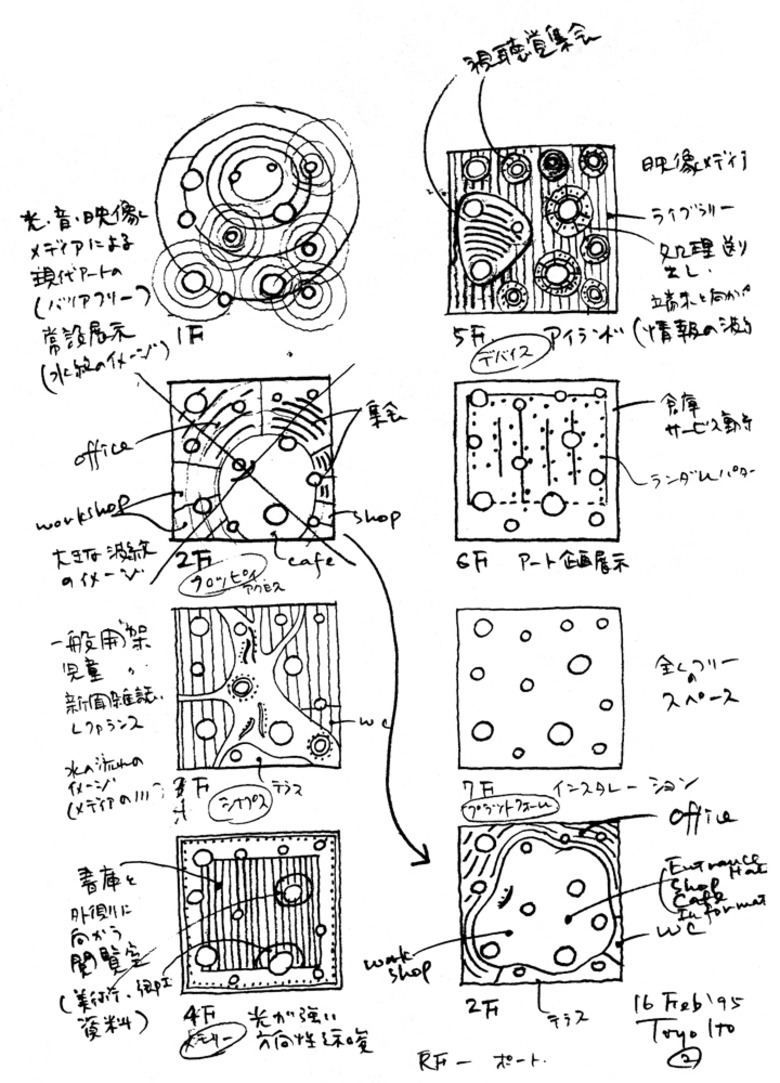 視聴覚集会
光・音・映像
メディアによる
現代アートの
(バリアフリー)
常設展示
(水紋のイメージ)
1F
映像メディア
ライブラリー
処理 送り
出し.
5F
デバイス
アイランド
office
workshop
大きな波紋
のイメージ
集会
shop
cafe
2F
アクセス
倉庫
サービス動
6F アート企画展示
一般用
児童 〃
新聞雑誌
レファランス
水の流れの
イメージ
WC
テラス
シナプス
全くフリー
の
スペース
7F インスタレーション
プラットフォーム
書庫と
外側に
向かう
閲覧室
資料)
4F 光が強い
メモリー
office
Entrance
Shop
Cafe
Informat
WC
work
shop
2F
テラス
RF ー ポート.
16 Feb '95
Toyo Ito
2